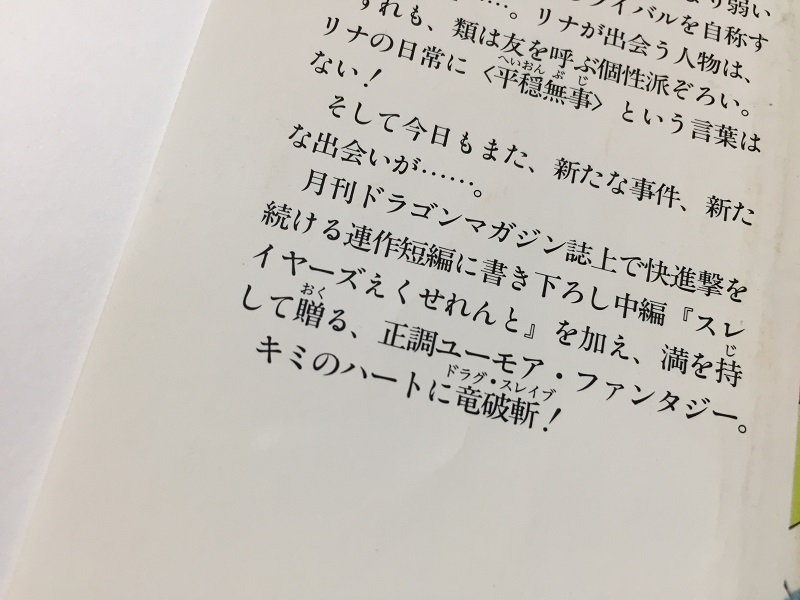 り弱い
イバルを自称す
ずれも、類は友を呼ぶ個性派ぞろい。
……。リナが出会う人物は、
リナの日常に〈平穏無事〉という言葉は
へいおんぶじ
ない!
そして今日もまた、新たな事件、新た
な出会いが……。
月刊ドラゴンマガジン誌上で快進撃を
続ける連作短編に書き下ろし中編『スレ
イヤーズえくせれんと』を加え、満を持
じ
して贈る、正調ユーモア・ファンタジー。
おく
キミのハートに竜破斬!
ドラグ・スレイブ